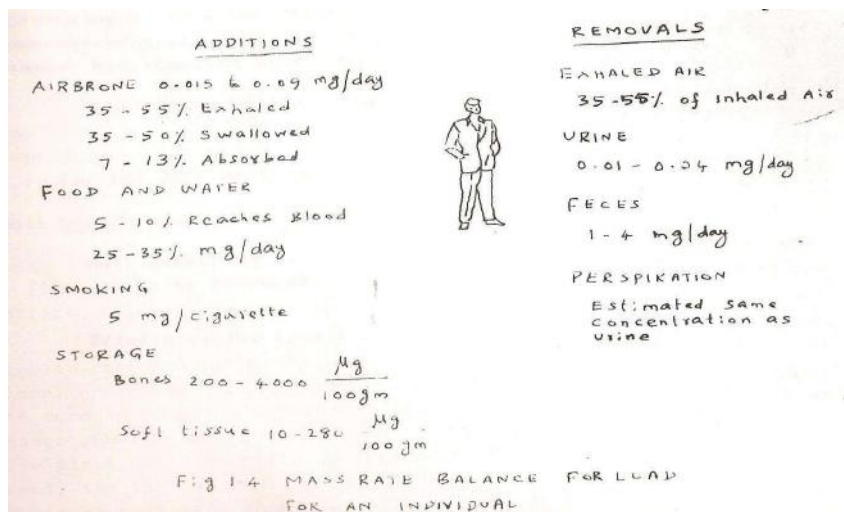 ADDITIONS
AIRBRONE 0.015 to 0.09 mg/day
35 - 55% Exhaled
35 - 50% Swallowed
7 - 13% Absorbed
FOOD AND WATER
5 - 10% Reaches Blood
25 - 35% mg/day
SMOKING
5 mg/cigarette
STORAGE
Bones 200 - 4000 µg/100gm
Soft tissue 10-280 µg/100 gm
REMOVALS
EXHALED AIR
35-55% of Inhaled Air
URINE
0.01 - 0.04 mg/day
FECES
1 - 4 mg/day
PERSPIRATION
Estimated same
concentration as
urine
Fig 1.4 MASS RATE BALANCE FOR LEAD
FOR AN INDIVIDUAL